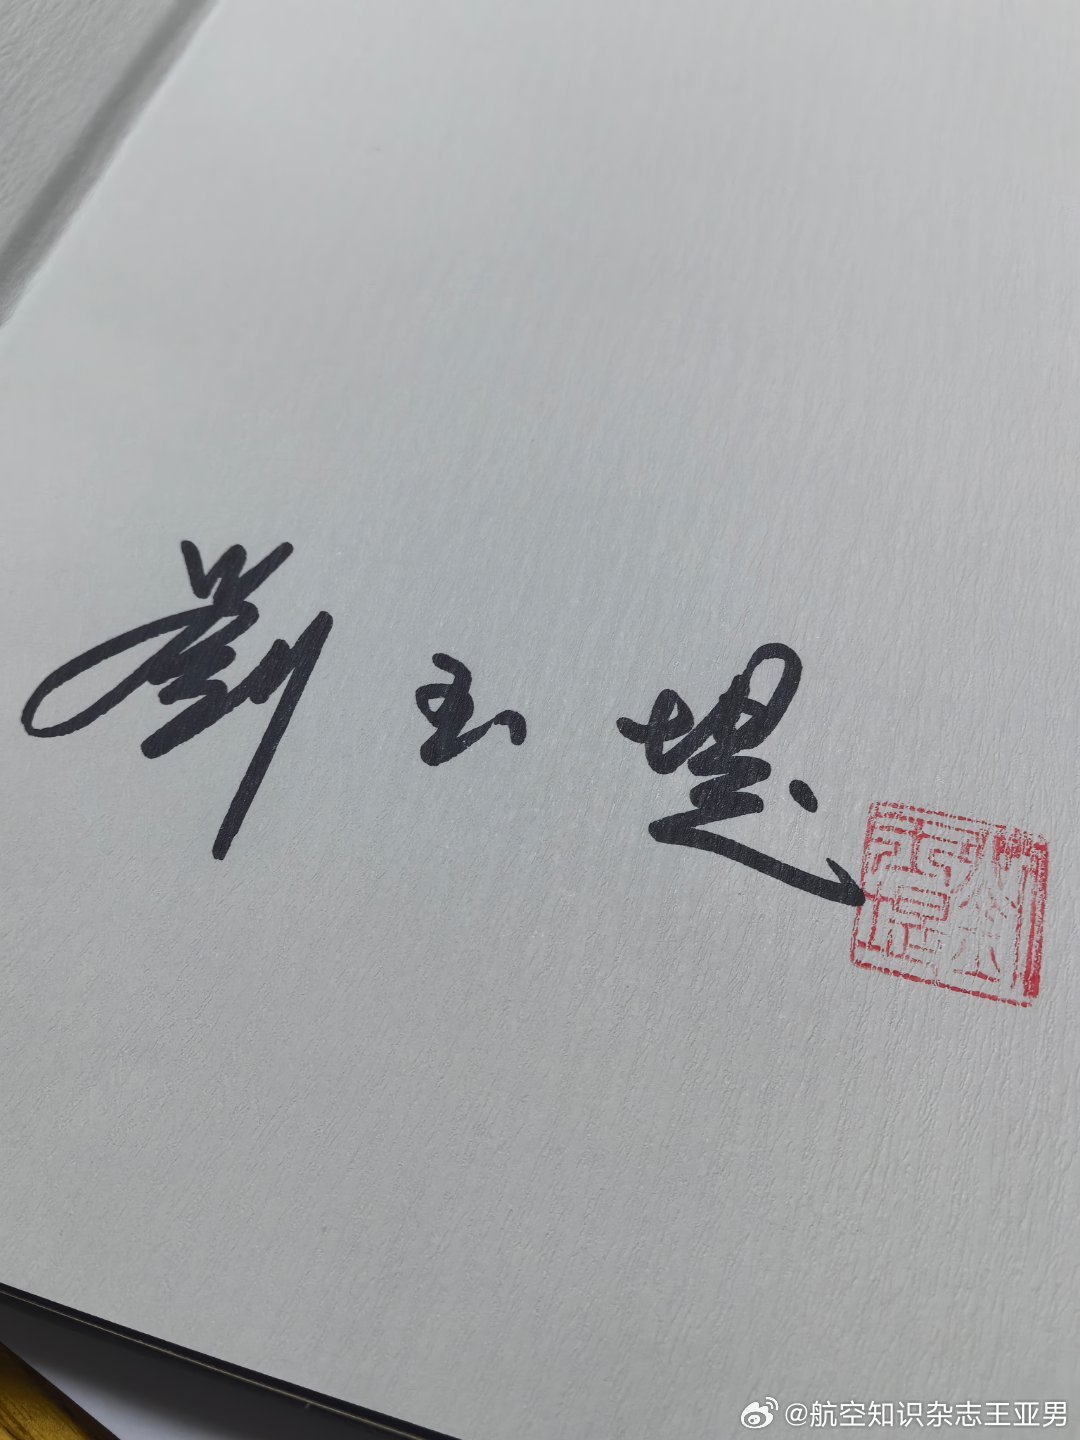 劉玉堤
@航空知识杂志王亚男